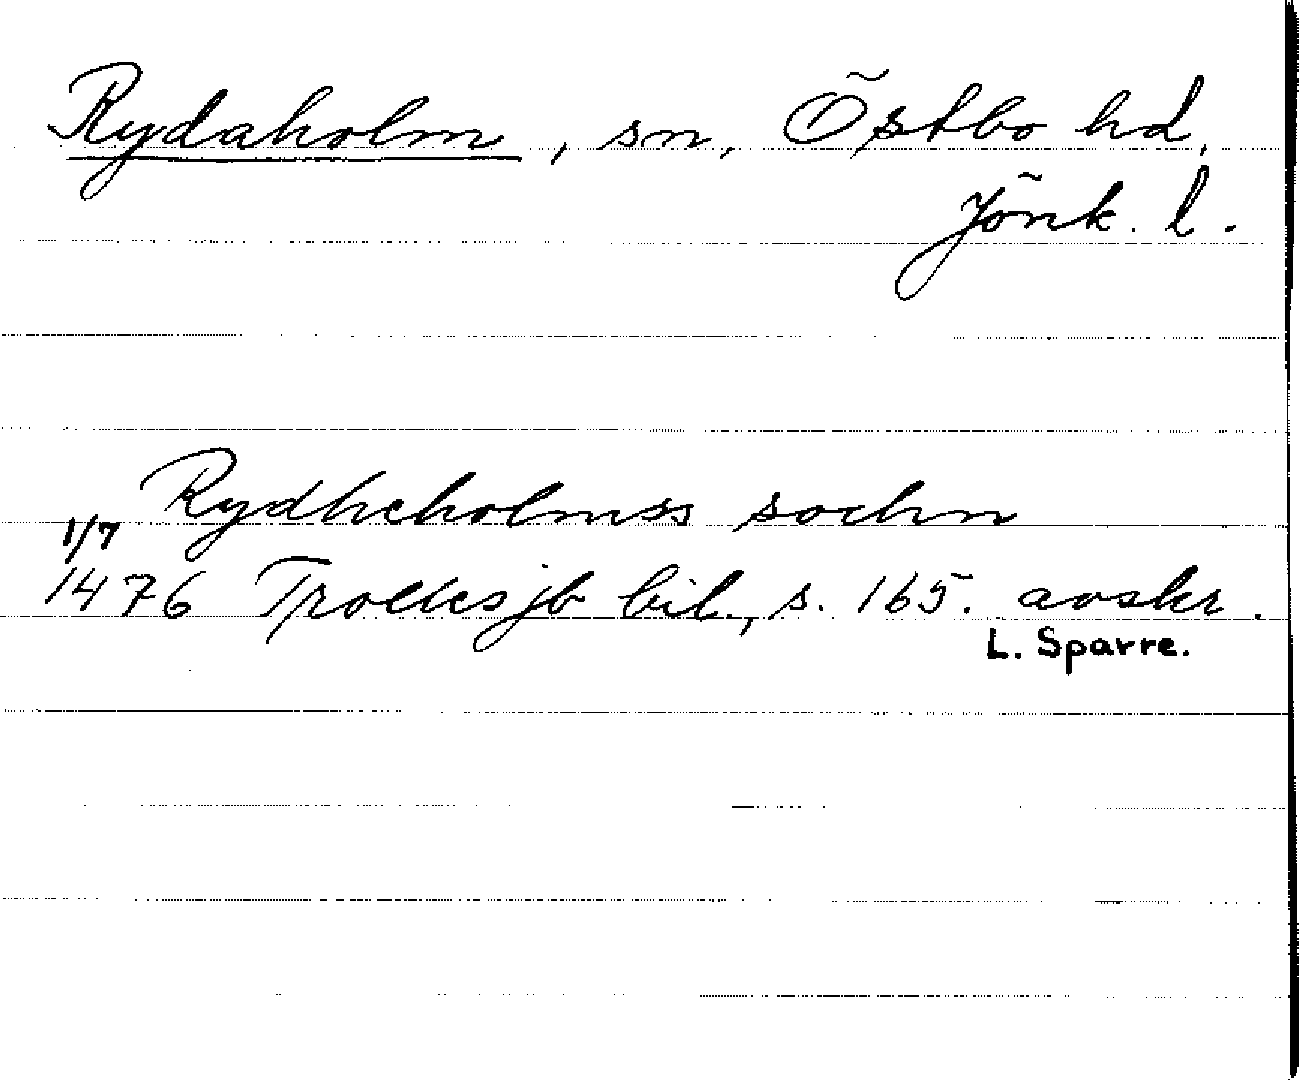 Rydaholm, sn, Östbo hd,
Jönk. l.
Rydheholmss sochn
1/7
1476 Trollesjb bil., s. 165. avskr.
L. Sparre.